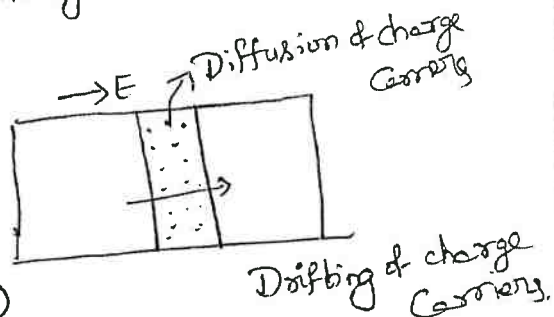 Diffusion of charge
Carriers
→ E
Drifting of charge
Carriers.